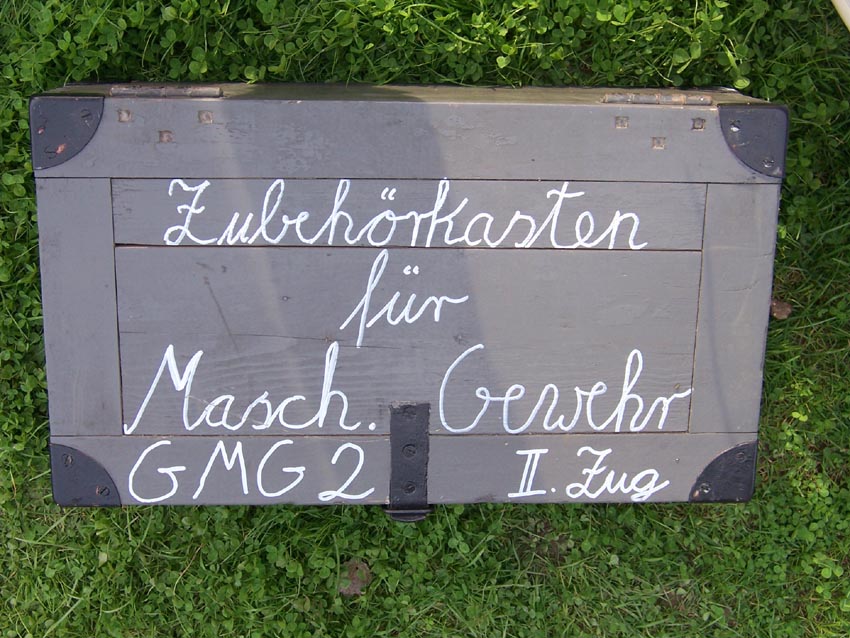 Zubehörkasten
für
Masch. Gewehr
GMG 2 II. Zug